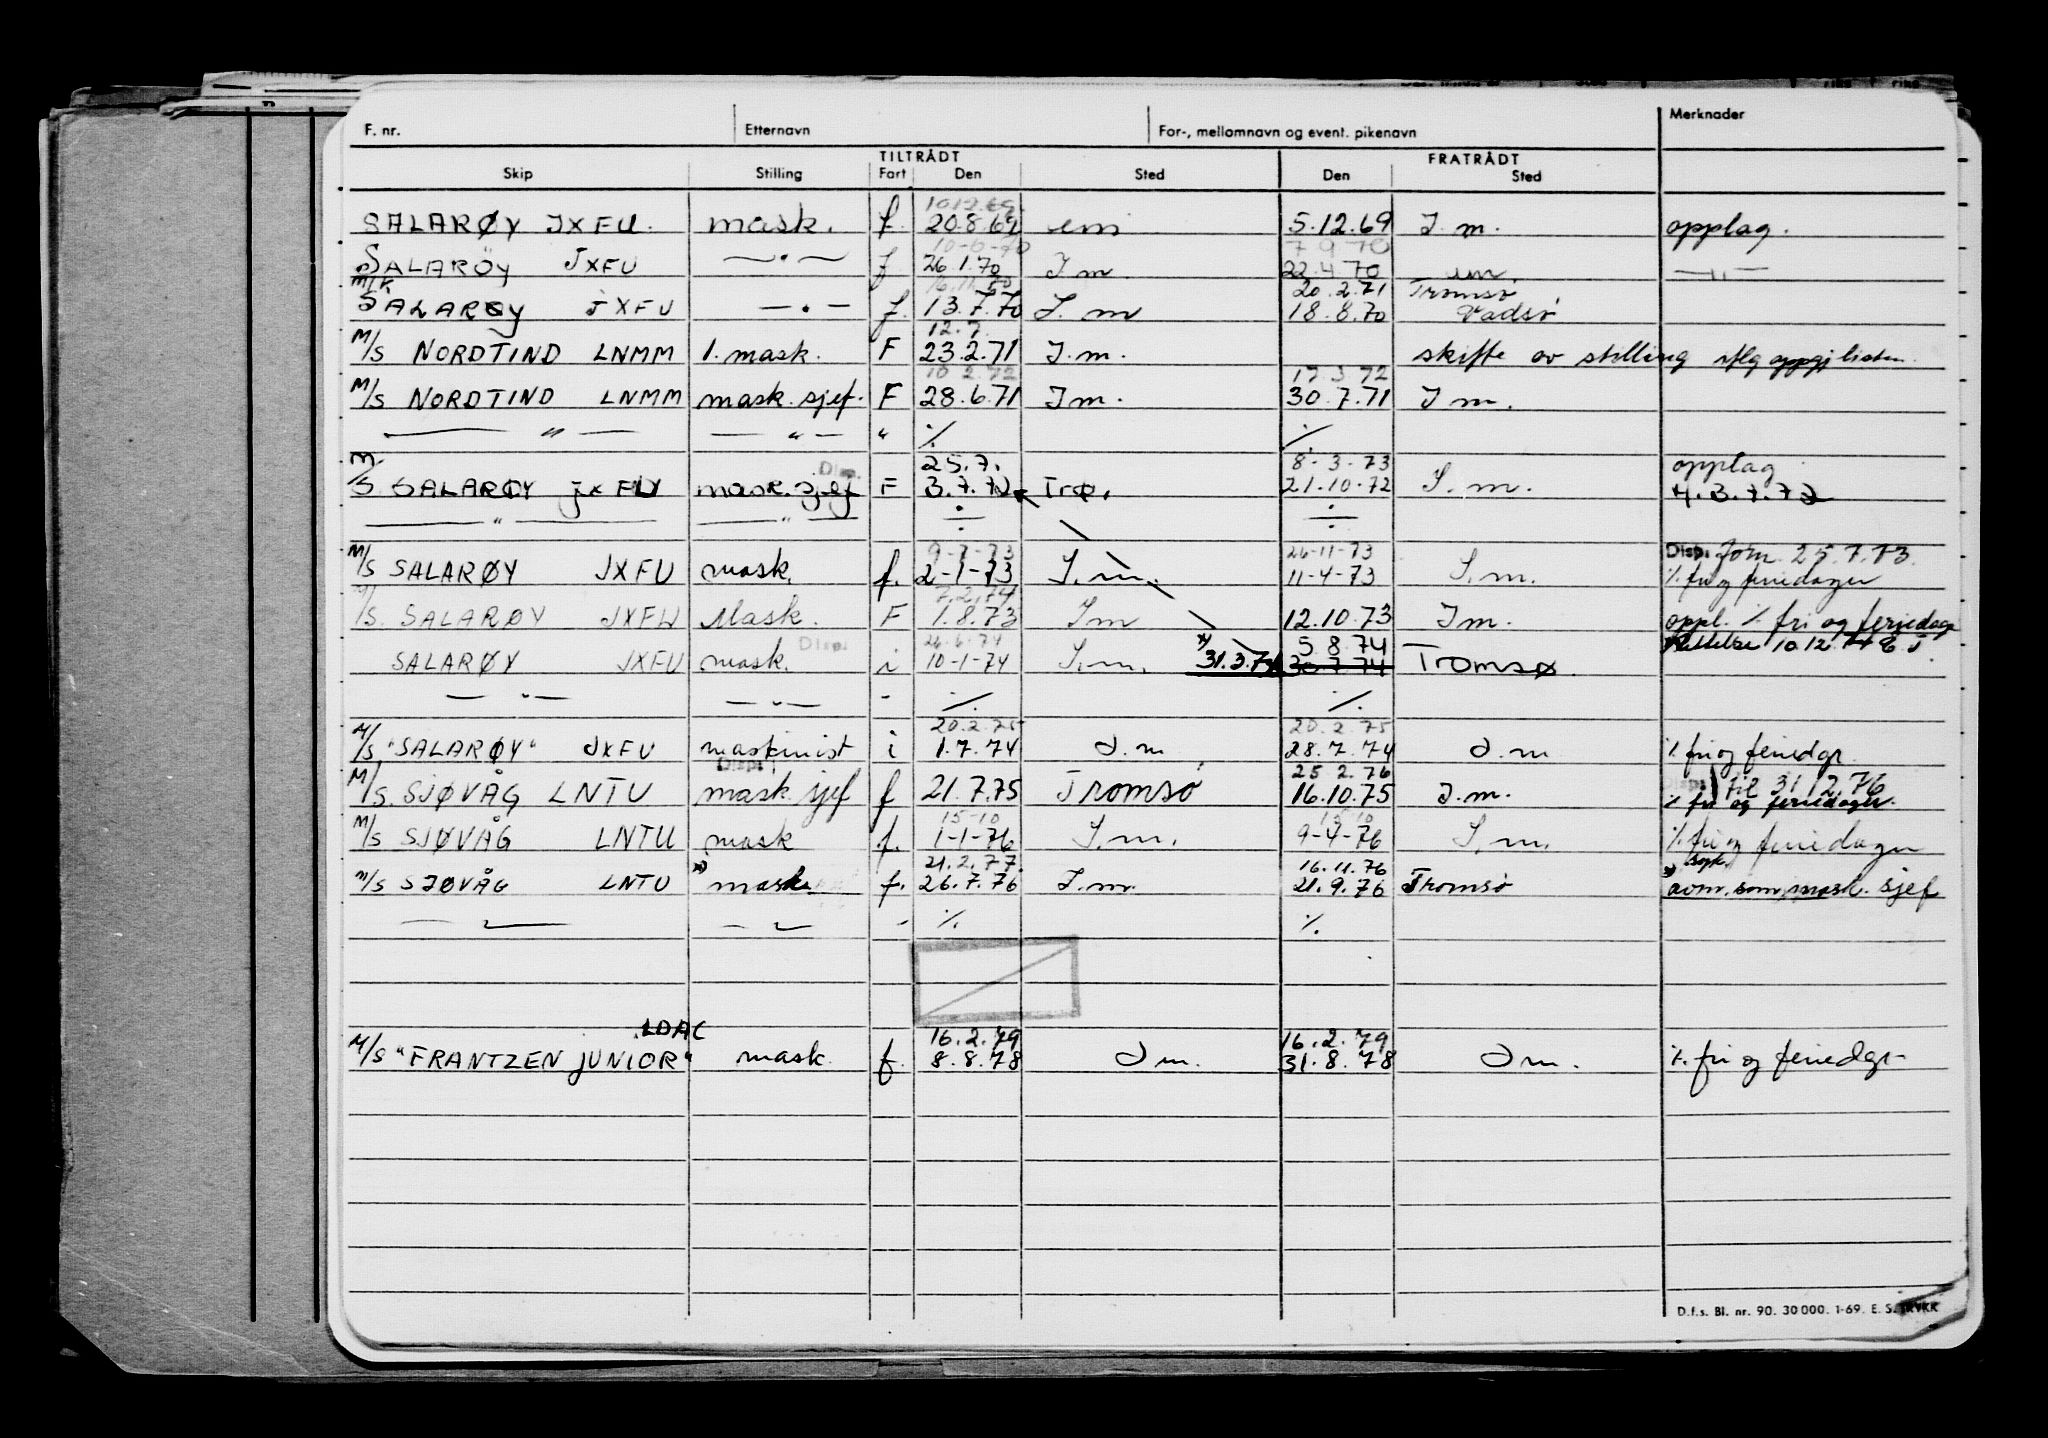 F. nr. Etternavn For-, mellomnavn og event. pikenavn Merknader
TILTRÅDT FRATRÅDT
Skip Stilling Fart Den Sted Den Sted
10.12.69.
SALARØY JXFU. mask. f. 20.8.69 um 5.12.69 I.m. opplag.
10-6-70 7 9 70
SALARØY JXFU — " — f 26.1.70 I m. 22.4.70 um. — " —
M/K 16.11.70 20.2.71 Tromsø
SALARØY JXFU — " — f. 13.7.70 I. m 18.8.70 Vadsø
12.7.
M/S NORDTIND LNMM 1. mask. F 23.2.71 I.m. skifte av stilling iflg oppgj listen.
10 2.72 17 3 72
M/S NORDTIND LNMM mask. sjef. F 28.6.71 I m. 30.7.71 I m.
— " — — " — " ./. ./.
Disp. 25.7. 8-3-73 opplag
M/S SALARØY JXFU mask. sjef F 3.7.72 Trø. 21.10.72 I.m. 4.3.7.72
— " — — " — ÷ ÷
9-7-73 26-11-73 Disp. form 25.7.73.
M/S SALARØY JXFU mask. f. 2-1-73 I.m. 11-4-73 I.m. ./. fri og feriedager
7.2.74
M/S. SALARØY JXFU Mask. F 1.8.73 I m 12.10.73 I m. oppl. ./. fri og feriedage
Disp. 26.6.74 x) 5.8.74 Rettelse 10.12.74
SALARØY JXFU mask. i 10-1-74 I.m. 31.3.74 30.7.74 Tromsø.
— " — — " — - ./. ./.
20.2.75 20.2.75
M/S "SALARØY" JXFU maskinist i 1.7.74 I.m 28.7.74 I.m ./. fri og feriedgr.
Disp. 25 2.76 Disp. til 31 2.76
M/S. SJØVÅG LNTU mask sjef f 21.7.75 Tromsø 16.10.75 I.m. ./. fri og feriedager.
15-10 15 10
M/S SJØVÅG LNTU mask f. 1-1-76 I.m. 9-4-76 I.m. ./. fri og feriedager
21.2.77. 16.11.76 syk.
M/S SJØVÅG LNTU x) mask. f. 26.7.76 I.m. 21.9.76 Tromsø x) avm. som mask. sjef
— " — — " — - ./. ./.
LDAC 16.2.79 16.2.79
M/S "FRANTZEN JUNIOR" mask. f. 8.8.78 I m. 31.8.78 I m. ./. fri og feriedgr
D.f.s. Bl. nr. 90. 30 000. 1-69. E. S. TRYKK